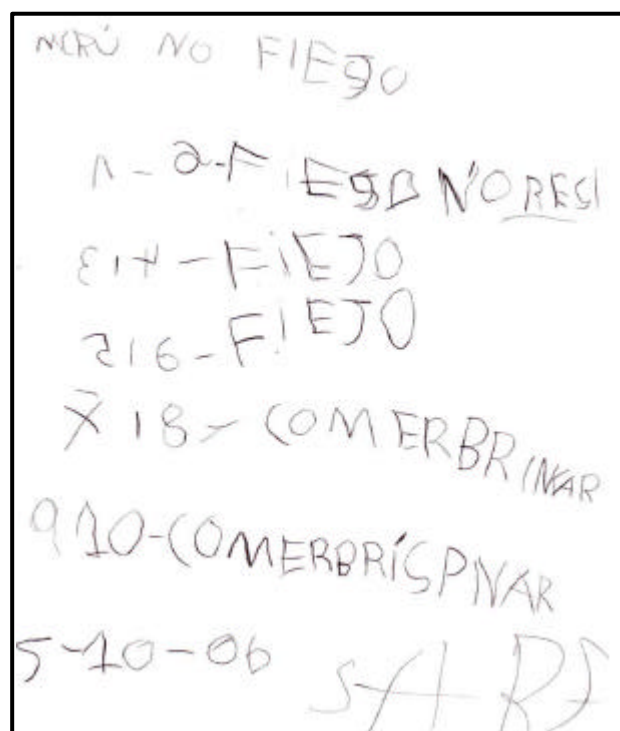 MERÚ NO FIEJO
1-2-FIEJO NO RESI
314-FIEJO
516-FIEJO
718-COMERBRINAR
910-COMERBRÍSPNAR
5-10-06 SARS